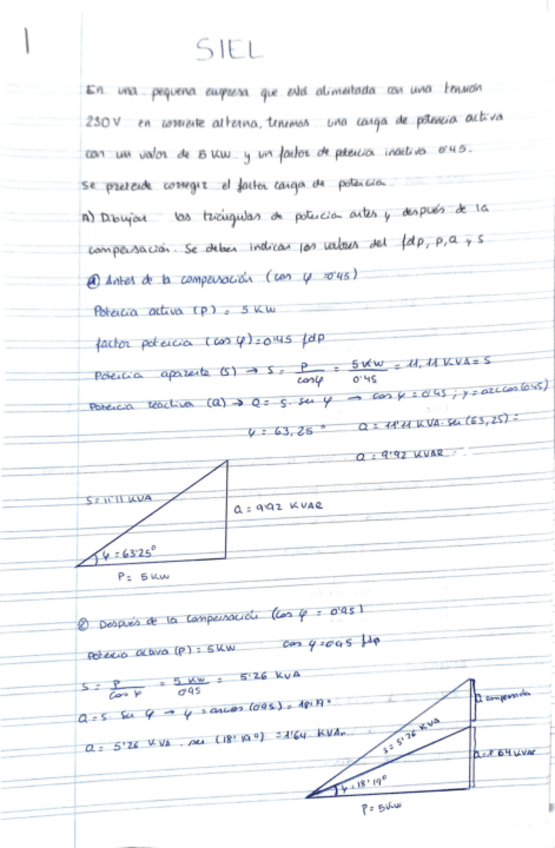 1
SIEL
En una pequeña empresa que está alimentada con una tensión
230V en corriente alterna, tenemos una carga de potencia activa
con un valor de 5 KW y un factor de potencia inactiva 0'45.
Se pretende corregir el factor carga de potencia
A) Dibujar los triángulos de potencia antes y después de la
compensación. Se deben indicar los valores del fdp, p, Q y S
① Antes de la compensación (cos φ = 0'45)
Potencia activa (P) = 5 KW
factor potencia (cos φ) = 0'45 fdp
Potencia aparente (S) → S = P / cos φ = 5KW / 0'45 = 11,11 KVA = S
Potencia reactiva (Q) → Q = S. sen φ → cos φ = 0'45 ; γ = arc cos (0'45)
φ = 63,25° Q = 11'11 KVA. sen (63,25) =
Q = 9'92 KVAR
S = 11'11 KVA
Q = 9'92 KVAR
φ = 63'25°
P = 5 KW
② Después de la compensación (cos φ = 0'95)
Potencia activa (P) = 5KW cos φ = 0'95 fdp
S = P / cos φ = 5 KW / 0'95 = 5'26 KVA
Q = S sen φ → φ = arcos (0'95) = 18'19°
Q = 5'26 KVA . sen (18'19°) = 1'64 KVAr
Q compensada
S = 5'26 KVA
Q = 1'64 KVAR
φ = 18'19°
P = 5KW